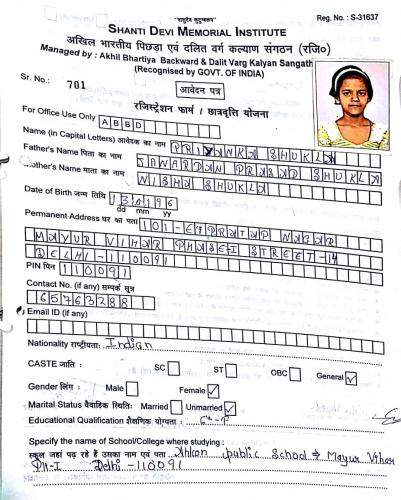 "वसुधैव कुटुम्बकम"
Reg. No. : S-31637
SHANTI DEVI MEMORIAL INSTITUTE
अखिल भारतीय पिछड़ा एवं दलित वर्ग कल्याण संगठन (रजि०)
Managed by : Akhil Bhartiya Backward & Dalit Varg Kalyan Sangath
(Recognised by GOVT. OF INDIA)
Sr. No.: 701
आवेदन पत्र
रजिस्ट्रेशन फार्म / छात्रवृत्ति योजना
For Office Use Only ABBD
Name (in Capital Letters) आवेदक का नाम PRIYANKA SHUKLA
Father's Name पिता का नाम JANARDAN PRASAD SHUKLA
Mother's Name माता का नाम NISHA SHUKLA
Date of Birth जन्म तिथि 130196
dd mm yy
Permanent Address घर का पता 101-E PRATAP NAGAR
MAYUR VIHAR PHASE-I STREET-14
DELHI-110091
PIN पिन 110091
Contact No. (if any) सम्पर्क सूत्र
65763288
Email ID (if any)
Nationality राष्ट्रीयताः Indian
CASTE जाति : SC ST OBC General ✓
Gender लिंग : Male Female ✓
Marital Status वैवाहिक स्थितिः Married Unmarried ✓
Educational Qualification शैक्षणिक योग्यता : 6th
Specify the name of School/College where studying :
स्कूल जहां पढ़ रहे हैं उसका नाम एवं पता Ahlcon public School Mayur Vihar
PH-I Delhi-110091